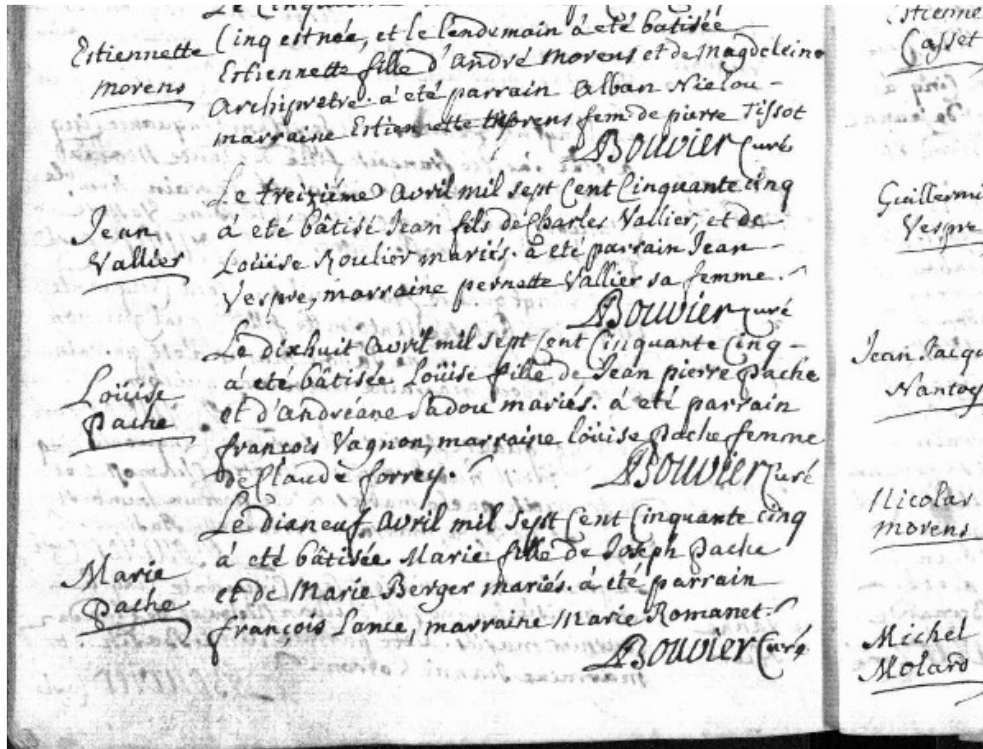 Le Cinquième
Estiennette
morens
Cinq est née, et le lendemain a été batisée
Estiennette fille d'andré morens et de magdeleine
archiprêtre. à été parrain alban Nielou
marraine Estiennette morens fem. de pierre Tissot
ABouvier Curé
Jean
Vallier
Le treizième avril mil sept Cent Cinquante cinq
à eté bâtisé Jean fils de Charles Vallier, et de
Loüise Roulier mariés. à été parrain Jean
Vespre, marraine pernette Vallier sa femme.
ABouvier curé
Loüise
Pache
Le dixhuit avril mil sept Cent Cinquante Cinq
à eté bâtisée Loüise fille de Jean pierre Pache
et d'andréane Sadou mariés. à été parrain
françois Vagnon, marraine loüise Pache femme
de Claude forrey.
ABouvier Curé
Marie
Pache
Le dianeuf avril mil sept Cent Cinquante cinq
à eté bâtisée Marie fille de Joseph Pache
et de Marie Berger mariés. à été parrain
françois Lance, marraine Marie Romanet.
ABouvier Curé
Estienne
Casset
Guillermi
Vespre
Jean Jacqu
Nantoy
Nicolas
morens
Michel
Molard